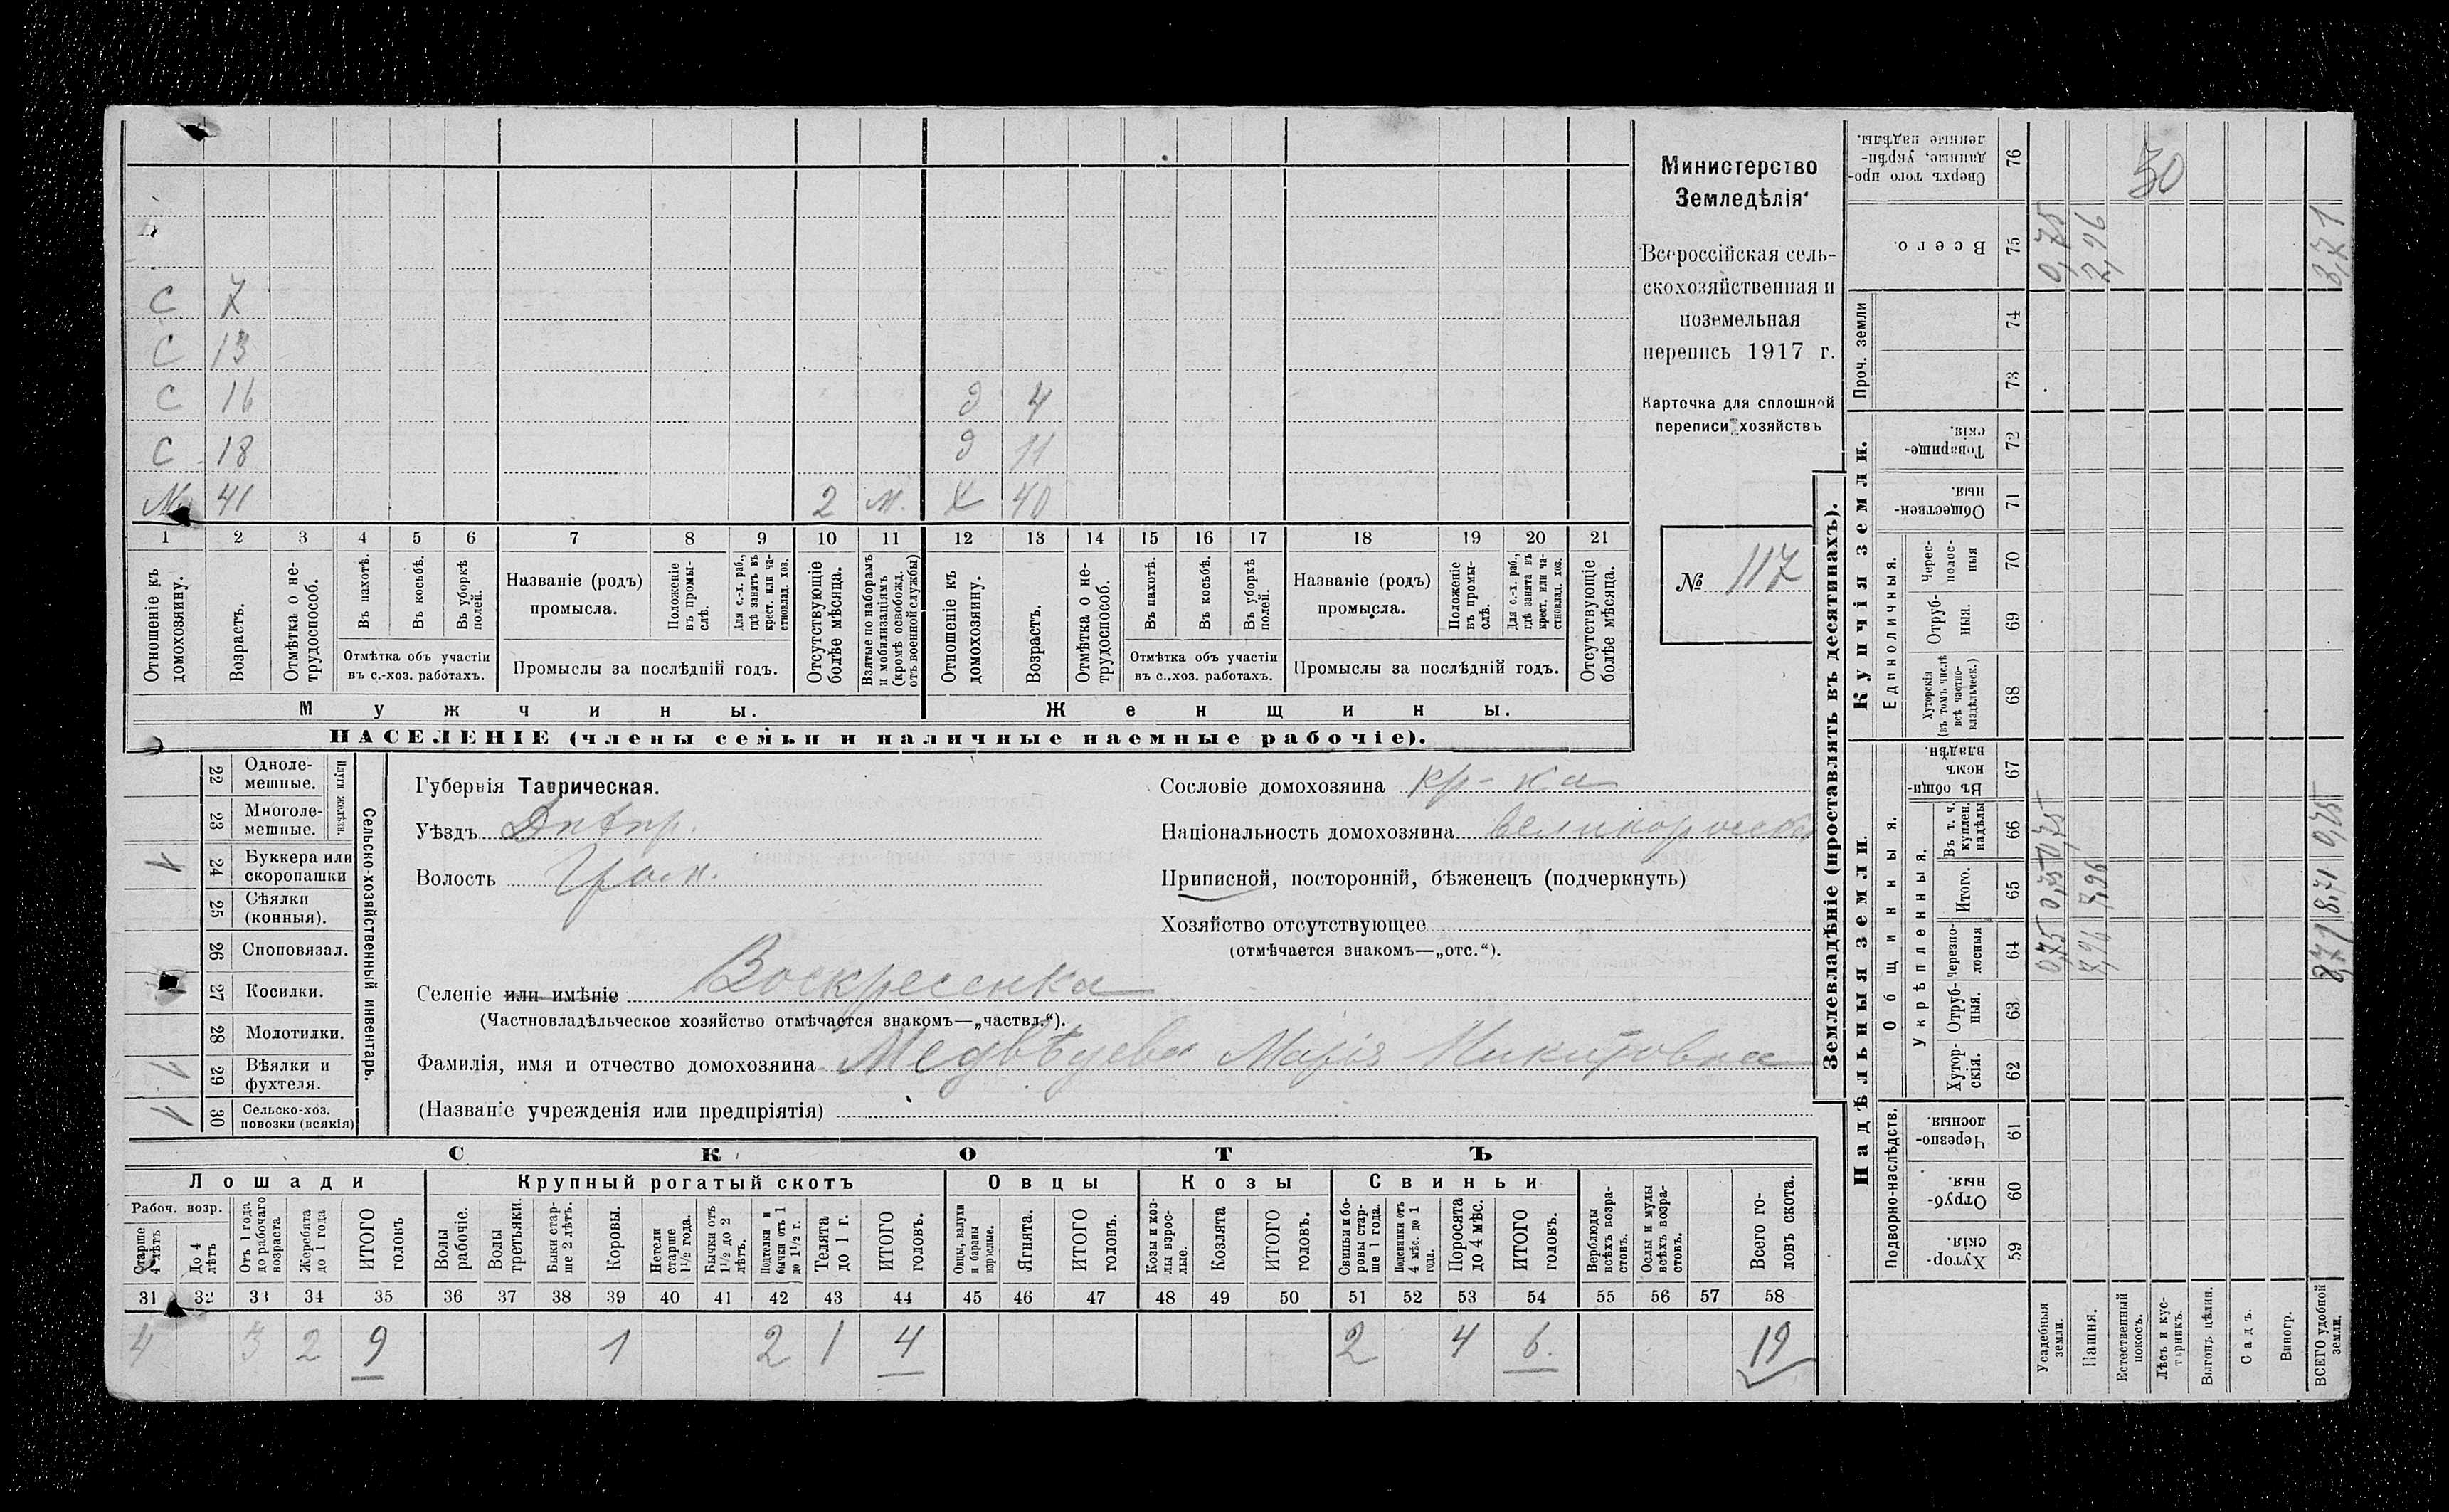 С 7
С 13
С 16 д 4
С 18 д 11
М 41 2 м. х 40
1 2 3 4 5 6 7 8 9 10 11 12 13 14 15 16 17 18 19 20 21
Отношеніе къ домохозяину.
Возрастъ.
Отмѣтка о не-
трудоспособ.
Въ пахотѣ.
Въ косьбѣ.
Въ уборкѣ полей.
Отмѣтка объ участіи
въ с.-хоз. работахъ.
Названіе (родъ)
промысла.
Положеніе
въ промы-
слѣ.
Для с.-х. раб.,
гдѣ занятъ въ
крест. или ча-
стновлад. хоз.
Промыслы за послѣдній годъ.
Отсутствующіе
болѣе мѣсяца.
Взятые по наборамъ
и мобилизаціямъ
(кромѣ освобожд.
отъ военной службы)
Отношеніе къ
домохозяину.
Возрастъ.
Отмѣтка о не-
трудоспособ.
Въ пахотѣ.
Въ косьбѣ.
Въ уборкѣ
полей.
Отмѣтка объ участіи
въ с..хоз. работахъ.
Названіе (родъ)
промысла.
Положеніе
въ промы-
слѣ.
Для с.-х. раб.,
гдѣ занята въ
крест. или ча-
стновлад. хоз.
Промыслы за послѣдній годъ.
Отсутствующіе
болѣе мѣсяца.
Мужчины.
Женщины.
НАСЕЛЕНІЕ (члены семьи и наличные наемные рабочіе).
Министерство
Земледѣлія
Всероссійская сель-
скохозяйственная и
поземельная
перепись 1917 г.
Карточка для сплошной
переписи хозяйствъ
№ 117
22 Одноле-
мешные.
23 Многоле-
мешные.
Плуги желѣзн.
1 24 Буккера или
скоропашки
25 Сѣялки
(конныя).
26 Сноповязал.
27 Косилки.
28 Молотилки.
1 29 Вѣялки и
фухтеля.
1 30 Сельско-хоз.
повозки (всякія)
Сельско-хозяйственный инвентарь.
Губернія Таврическая.
Уѣздъ Днѣпр.
Волость
Селеніе или имѣніе Воскресенка
(Частновладѣльческое хозяйство отмѣчается знакомъ—„частвл.“).
Фамилія, имя и отчество домохозяина Медвѣдева Марія Никитовна
(Названіе учрежденія или предпріятія)
Сословіе домохозяина кр-ка
Національность домохозяина великорусска
Приписной, посторонній, бѣженецъ (подчеркнуть)
Хозяйство отсутствующее
(отмѣчается знакомъ—„отс.“).
СКОТЪ
Лошади Крупный рогатый скотъ Овцы Козы Свиньи
Рабоч. возр.
Старше
4 лѣтъ
До 4
лѣтъ
Отъ 1 года
до рабочаго
возраста
Жеребята
до 1 года
ИТОГО
головъ
Волы
рабочіе.
Волы
третьяки.
Быки стар-
ше 2 лѣтъ.
Коровы.
Нетели
старше
1½ года.
Бычки отъ
1½ до 2
лѣтъ.
Подтелки и
бычки отъ 1
до 1½ г.
Телята
до 1 г.
ИТОГО
головъ.
Овцы, валухи
и бараны
взрослые.
Ягнята.
ИТОГО
головъ.
Козы и коз-
лы взрос-
лые.
Козлята
ИТОГО
головъ.
Свиньи и бо-
ровы стар-
ше 1 года.
Подсвинки отъ
4 мѣс. до 1
года.
Поросята
до 4 мѣс.
ИТОГО
головъ.
Верблюды
всѣхъ возра-
стовъ.
Ослы и мулы
всѣхъ возра-
стовъ.
Всего го-
ловъ скота.
31 32 33 34 35 36 37 38 39 40 41 42 43 44 45 46 47 48 49 50 51 52 53 54 55 56 57 58
4 3 2 9 1 2 1 4 2 4 6. 19
Землевладѣніе (проставлять въ десятинахъ).
Надѣльныя земли.
Купчія земли.
Проч. земли
Подворно-наслѣдств.
Общинныя.
Укрѣпленныя.
Единоличныя.
Хутор-
скія. 59
Отруб-
ныя. 60
Черезпо-
лосныя 61
Хутор-
скія. 62
Отруб-
ныя. 63
Черезпо-
лосныя 64
Итого. 65
Въ т. ч.
куплен.
надѣлы 66
Въ общи-
номъ
владѣн. 67
Хуторскія
(въ томъ числѣ
всѣ частно-
владѣльческ.) 68
Отруб-
ныя. 69
Черес-
полос-
ныя 70
Обществен-
ныя. 71
Товарище-
скія. 72
73
74
Всего. 75
Сверхъ того про-
данные, укрѣп-
ленные надѣлы. 76
Усадебныя
земли. 0,75 0,75 0,75 0,75
Пашня. 7,96 7,96
Естественный
покосъ.
Лѣсъ и кус-
тарникъ.
Выгонъ цѣлин.
Садъ.
Виногр.
ВСЕГО удобной
земли. 8,71 8,71 0,75
50